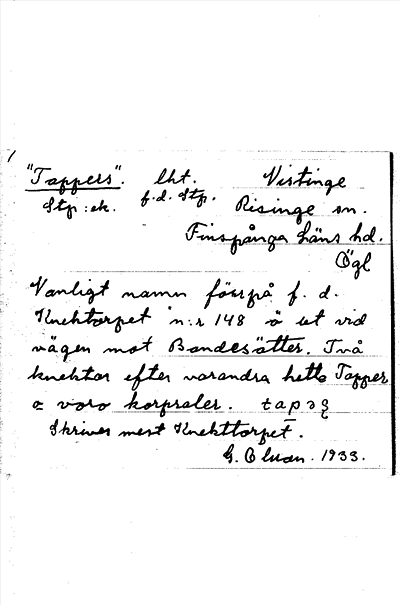 "Tappers". lht. Vistinge
Stp: ek. f.d. Stp. Risinge sn.
Finspånga läns hd.
Ögl
Vanligt namn förr på f. d.
Knektorpet n:r 148 ö ut vid
vägen mot Bandesätter. Två
knektar efter varandra hette Tapper
o voro korpraler. tapəʂ
Skrives mest Knekttorpet.
G. Olsson. 1933.